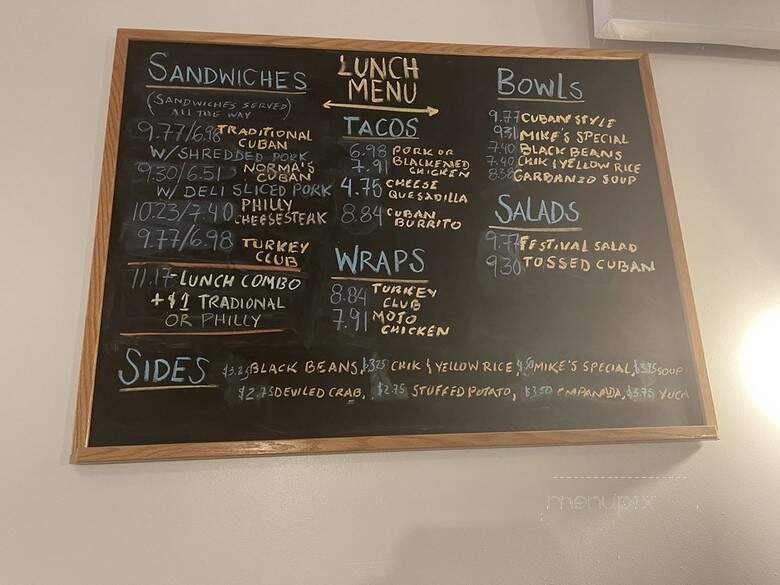 LUNCH
MENU
SANDWICHES
(SANDWICHES SERVED)
ALL THE WAY
9.77/6.98 TRADITIONAL
CUBAN
W/ SHREDDED PORK
9.30/6.51 NORMA'S
CUBAN
W/ DELI SLICED PORK
10.23/7.40 PHILLY
CHEESESTEAK
9.77/6.98 TURKEY
CLUB
11.17-LUNCH COMBO
+$1 TRADIONAL
OR PHILLY
TACOS
6.98 PORK OR
7.91 BLACKENED
CHICKEN
4.75 CHEESE
QUESADILLA
8.84 CUBAN
BURRITO
WRAPS
8.84 TURKEY
CLUB
7.91 MOJO
CHICKEN
BOWLS
9.77 CUBAN STYLE
9.31 MIKE'S SPECIAL
7.40 BLACK BEANS
7.40 CHIK & YELLOW RICE
8.38 GARBANZO SOUP
SALADS
9.77 FESTIVAL SALAD
9.30 TOSSED CUBAN
SIDES
$3.25 BLACK BEANS, $3.25 CHIK & YELLOW RICE, MIKE'S SPECIAL, SOUP
$2.75 DEVILED CRAB, $2.75 STUFFED POTATO, $3.50 EMPANADA, $3.75 YUCA
menupix